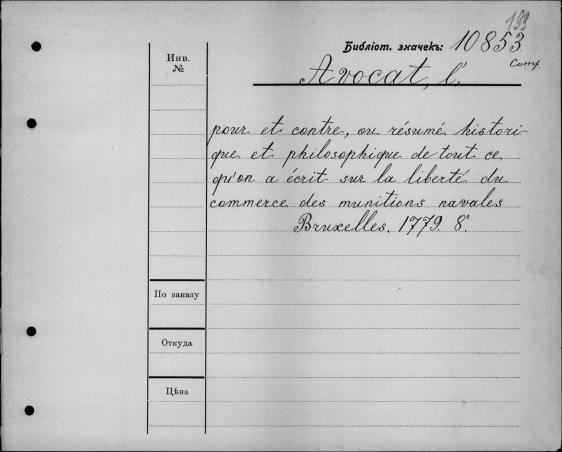 199
Библіот. значекъ: 10853
Comp.
Инв.
№
Avocat, l'
pour et contre, ou résumé histori-
que et philosophique de tout ce
qu'on a écrit sur la liberté du
commerce des munitions navales
Bruxelles. 1779. 8°.
По заказу
Откуда
Цѣна